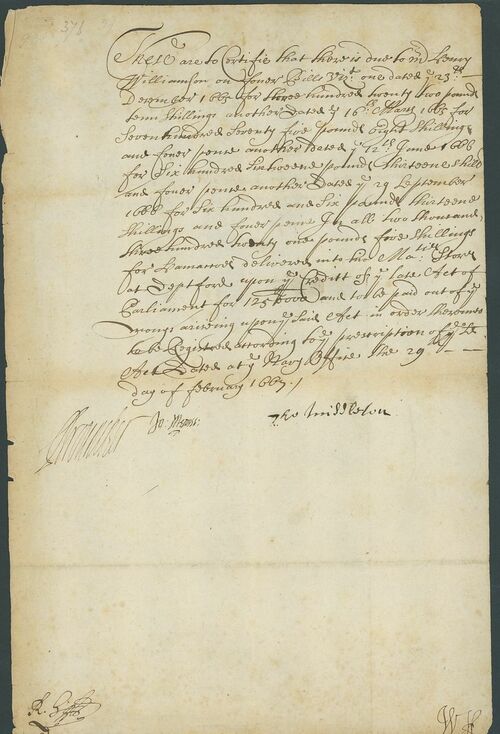 371
These are to Certifie that there is due to mr Henry
Williamson on fower Bills vizt. one dated ye 23th
December 1665 for three hundred twenty two pound
tenn shillings another dated ye 16th March 1665 for
Seven hundred Seventy five pounds eight shillings
and fower pence another dated ye 12th June 1666
for Six hundred Sixteene pounds thirteene shill
and fower pence another Dated ye 29 September
1666 for Six hundred and Six pounds thirteene
shillings and fower pence In all two thousand
three hundred twenty one pounds five shillings
for delivered into his Maties. Stores
at Deptford upon ye Creditt of ye late Act of
Parliament for 1250000 and to be paid out of ye
monys ariseing upon ye said Act in order thereunto
to be Registred according to ye prescription of ye sd
Act Dated at ye Navy Office the 29
day of february 1667
Brouncker Jo: Mennes Tho Middleton